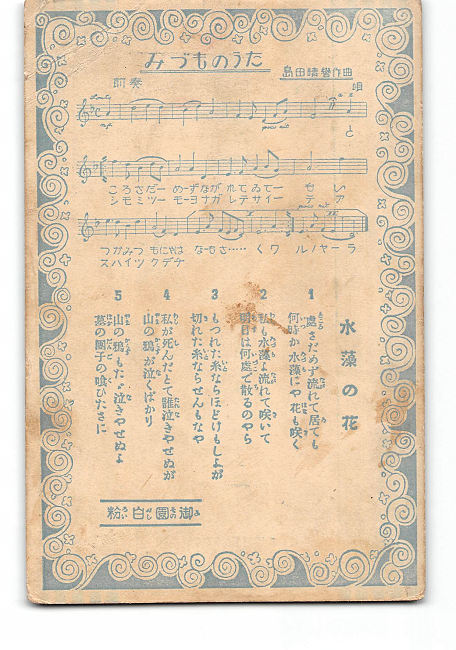 みづものうた
島田晴誉作曲
前奏
唄
と
ころさだーめーずながれてゐてー も い
シモミツーモーヨナガレテサイテー ア
つかみづもにやは なーも……さ く ワ ル ノ ヤ ー ラ
スハイヅクデチ
水藻の花
1
處さだめず流れて居ても
何時か水藻にや花も咲く
2
私も水藻よ流れて咲いて
明日は何處で散るのやら
3
もつれた糸ならほどけもしよが
切れた糸ならせんもなや
4
私が死んだとて誰泣きやせぬが
山の鴉が泣くばかり
5
山の鴉もたゞ泣きやせぬよ
墓の團子の喰ひたさに
御園白粉